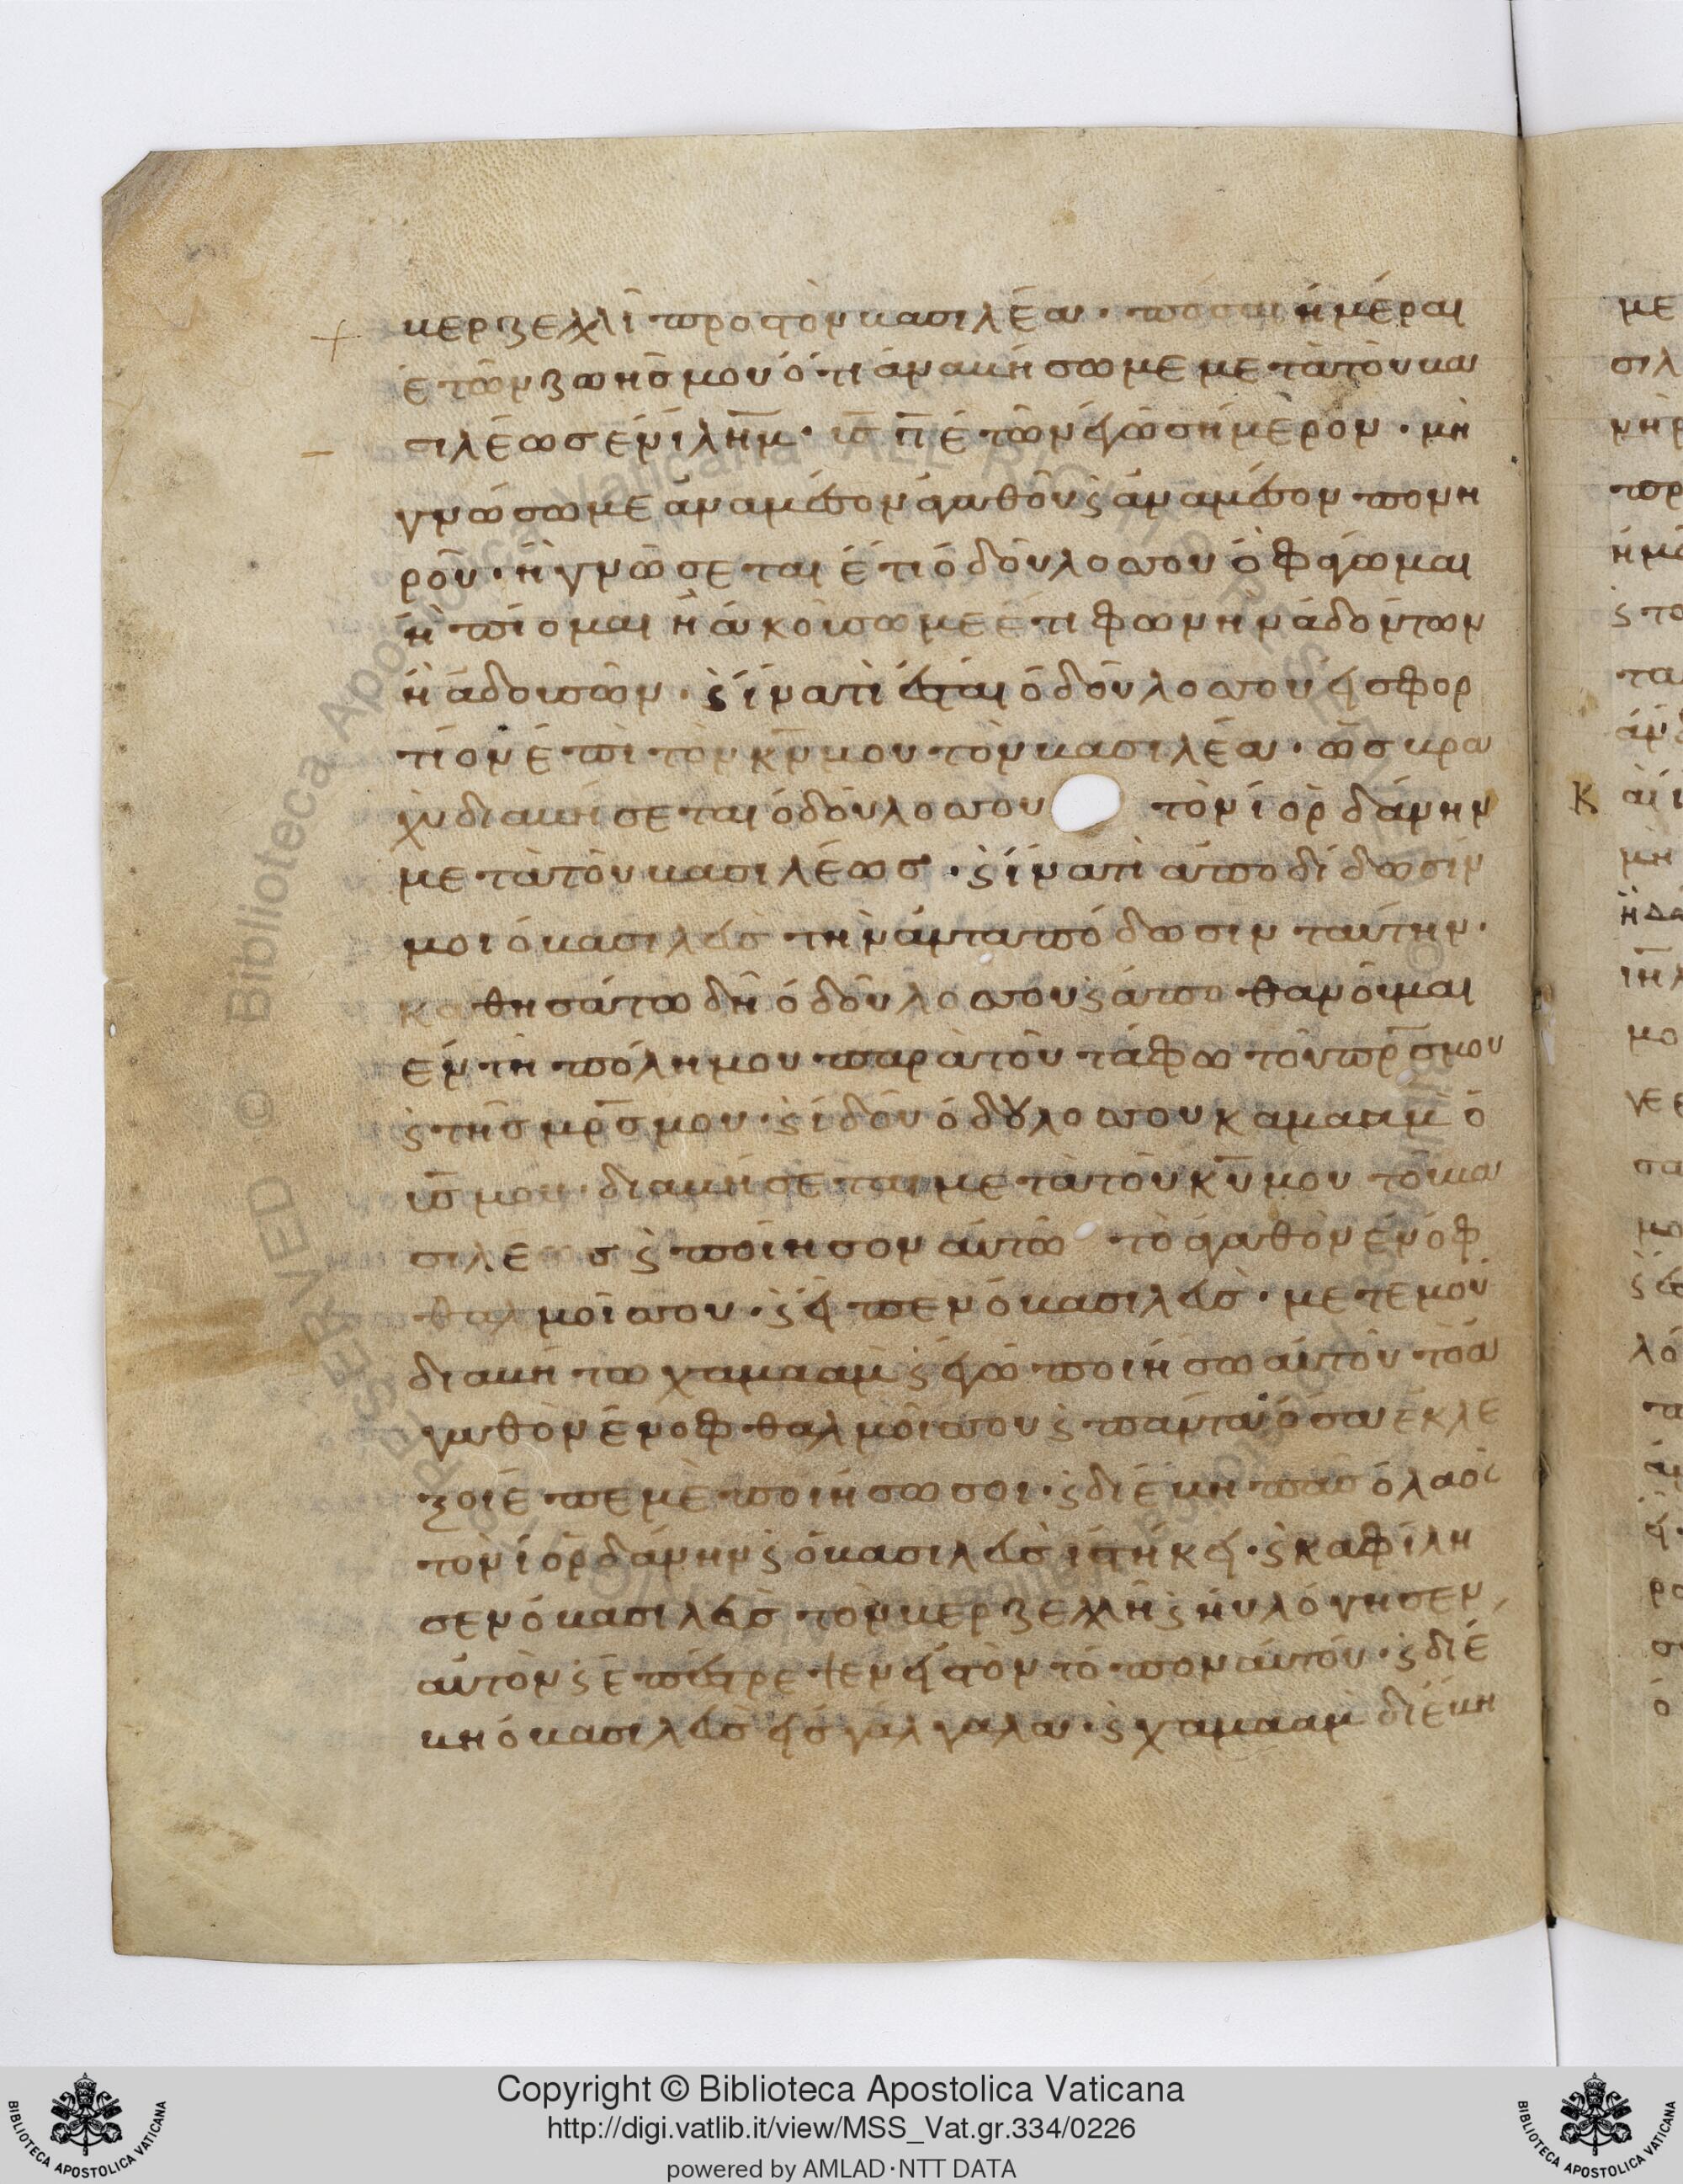 βερζελλὶ πρὸς τὸν βασιλέα · πόσαι ἡμέραι
ἐτῶν ζωῆς μου ὅτι ἀναβήσωμε μετὰ τοῦ βα
σιλέως ἐν ἰλη̅μ · υἱ̅ς π̅ ἐτῶν ἐγώ σήμερον · μὴ
γνώσωμε ἀναμέσον ἀγαθοῦ ϛ ἀναμέσον πονη
ροῦ · ἢ γνώσεται ἔτι ὁ δοῦλοσ σου ὃ φάγωμαι
ἢ πίομαι ἢ ἀκούσωμε ἔτι φωνὴν ἀδόντων
ἢ ἀδουσῶν · ϛ ἵνα τί ἔσται ὁ δοῦλοσ σου εἰς φορ
τίον ἐπὶ τὸν κ̅ν μου τὸν βασιλέα · ὡς βρα
χὺ διαβήσεται ὁ δοῦλοσ σου τὸν ἰορδάνην
μετὰ τοῦ βασιλέως · ϛ ἵνα τί ἀποδίδωσίν
μοι ὁ βασιλεὺς τὴν ἀνταπόδωσιν ταύτην ·
καθησάτω δὴ ὁ δοῦλοσ σου ϛ ἀποθανοῦμαι
ἐν τῇ πόλη μου παρὰ τοῦ τάφω τοῦ πρ̅ς μου
ϛ τῆς μρ̅ς μου · ϛ ἰδοὺ ὁ δοῦλοσ σου καμααμ ὁ
υἱ̅ς μου διαβήσεται μετὰ τοῦ κ̅υ μου τοῦ βα
σιλέ ς ϛ ποίησον αὐτῶ τὸ ἀγαθὸν ἐν ὀφ
θαλμοῖ σου · ϛ εἶπεν ὁ βασιλεὺς · μετ ἐμοῦ
διαβήτω χαμααμ ϛ ἐγώ ποιήσω αὐτοῦ τὸ ἀ
γαθὸν ἐν ὀφθαλμοῖ σου ϛ πάντα ὅσα ἐκλέ
ξοι ἐπ ἐμὲ ποιήσω σοι · ϛ διέβη πᾶς ὁ λαὸς
τὸν ἰορδάνην ϛ ὁ βασιλεὺς ἱστήκει · ϛ καφίλη
σεν ὁ βασιλεὺς τὸν βερζελλῆ ϛ ηὐλόγησεν
αὐτὸν ϛ ἐπέστρεψεν εἰς τὸν τόπον αὐτοῦ · ϛ διέ
βη ὁ βασιλεὺς εἰς γάλγαλα · ϛ χαμααμ διέβη
Copyright © Biblioteca Apostolica Vaticana
http://digi.vatlib.it/view/MSS_Vat.gr.334/0226
powered by AMLAD·NTT DATA
BIBLIOTECA APOSTOLICA VATICANA
BIBLIOTECA APOSTOLICA VATICANA